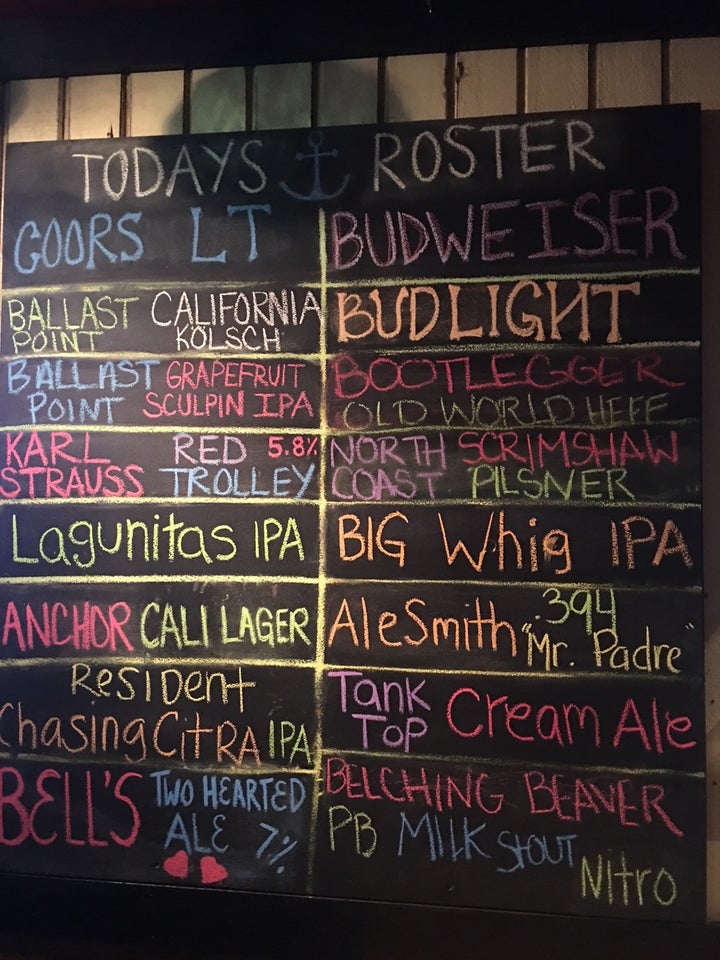 TODAYS ROSTER
COORS LT
BALLAST POINT CALIFORNIA KÖLSCH
BALLAST POINT GRAPEFRUIT SCULPIN IPA
KARL STRAUSS RED TROLLEY 5.8%
Lagunitas IPA
ANCHOR CALI LAGER
Resident
Chasing Citra IPA
BELL'S TWO HEARTED
ALE 7%
BUDWEISER
BUDLIGHT
BOOTLEGGER
OLD WORLD HEFE
NORTH COAST SCRIMSHAW PILSNER
BIG Whig IPA
AleSmith .394 "Mr. Padre"
Tank Top Cream Ale
BELCHING BEAVER
PB MILK STOUT
Nitro